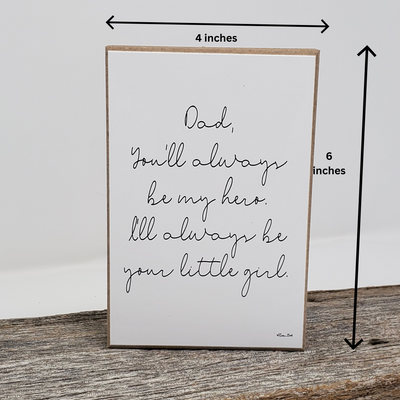 4 inches
Dad,
You'll always
be my hero.
I'll always be
your little girl.
6
inches